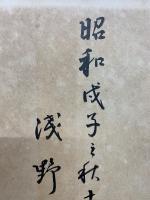 昭和戊子之秋
浅野